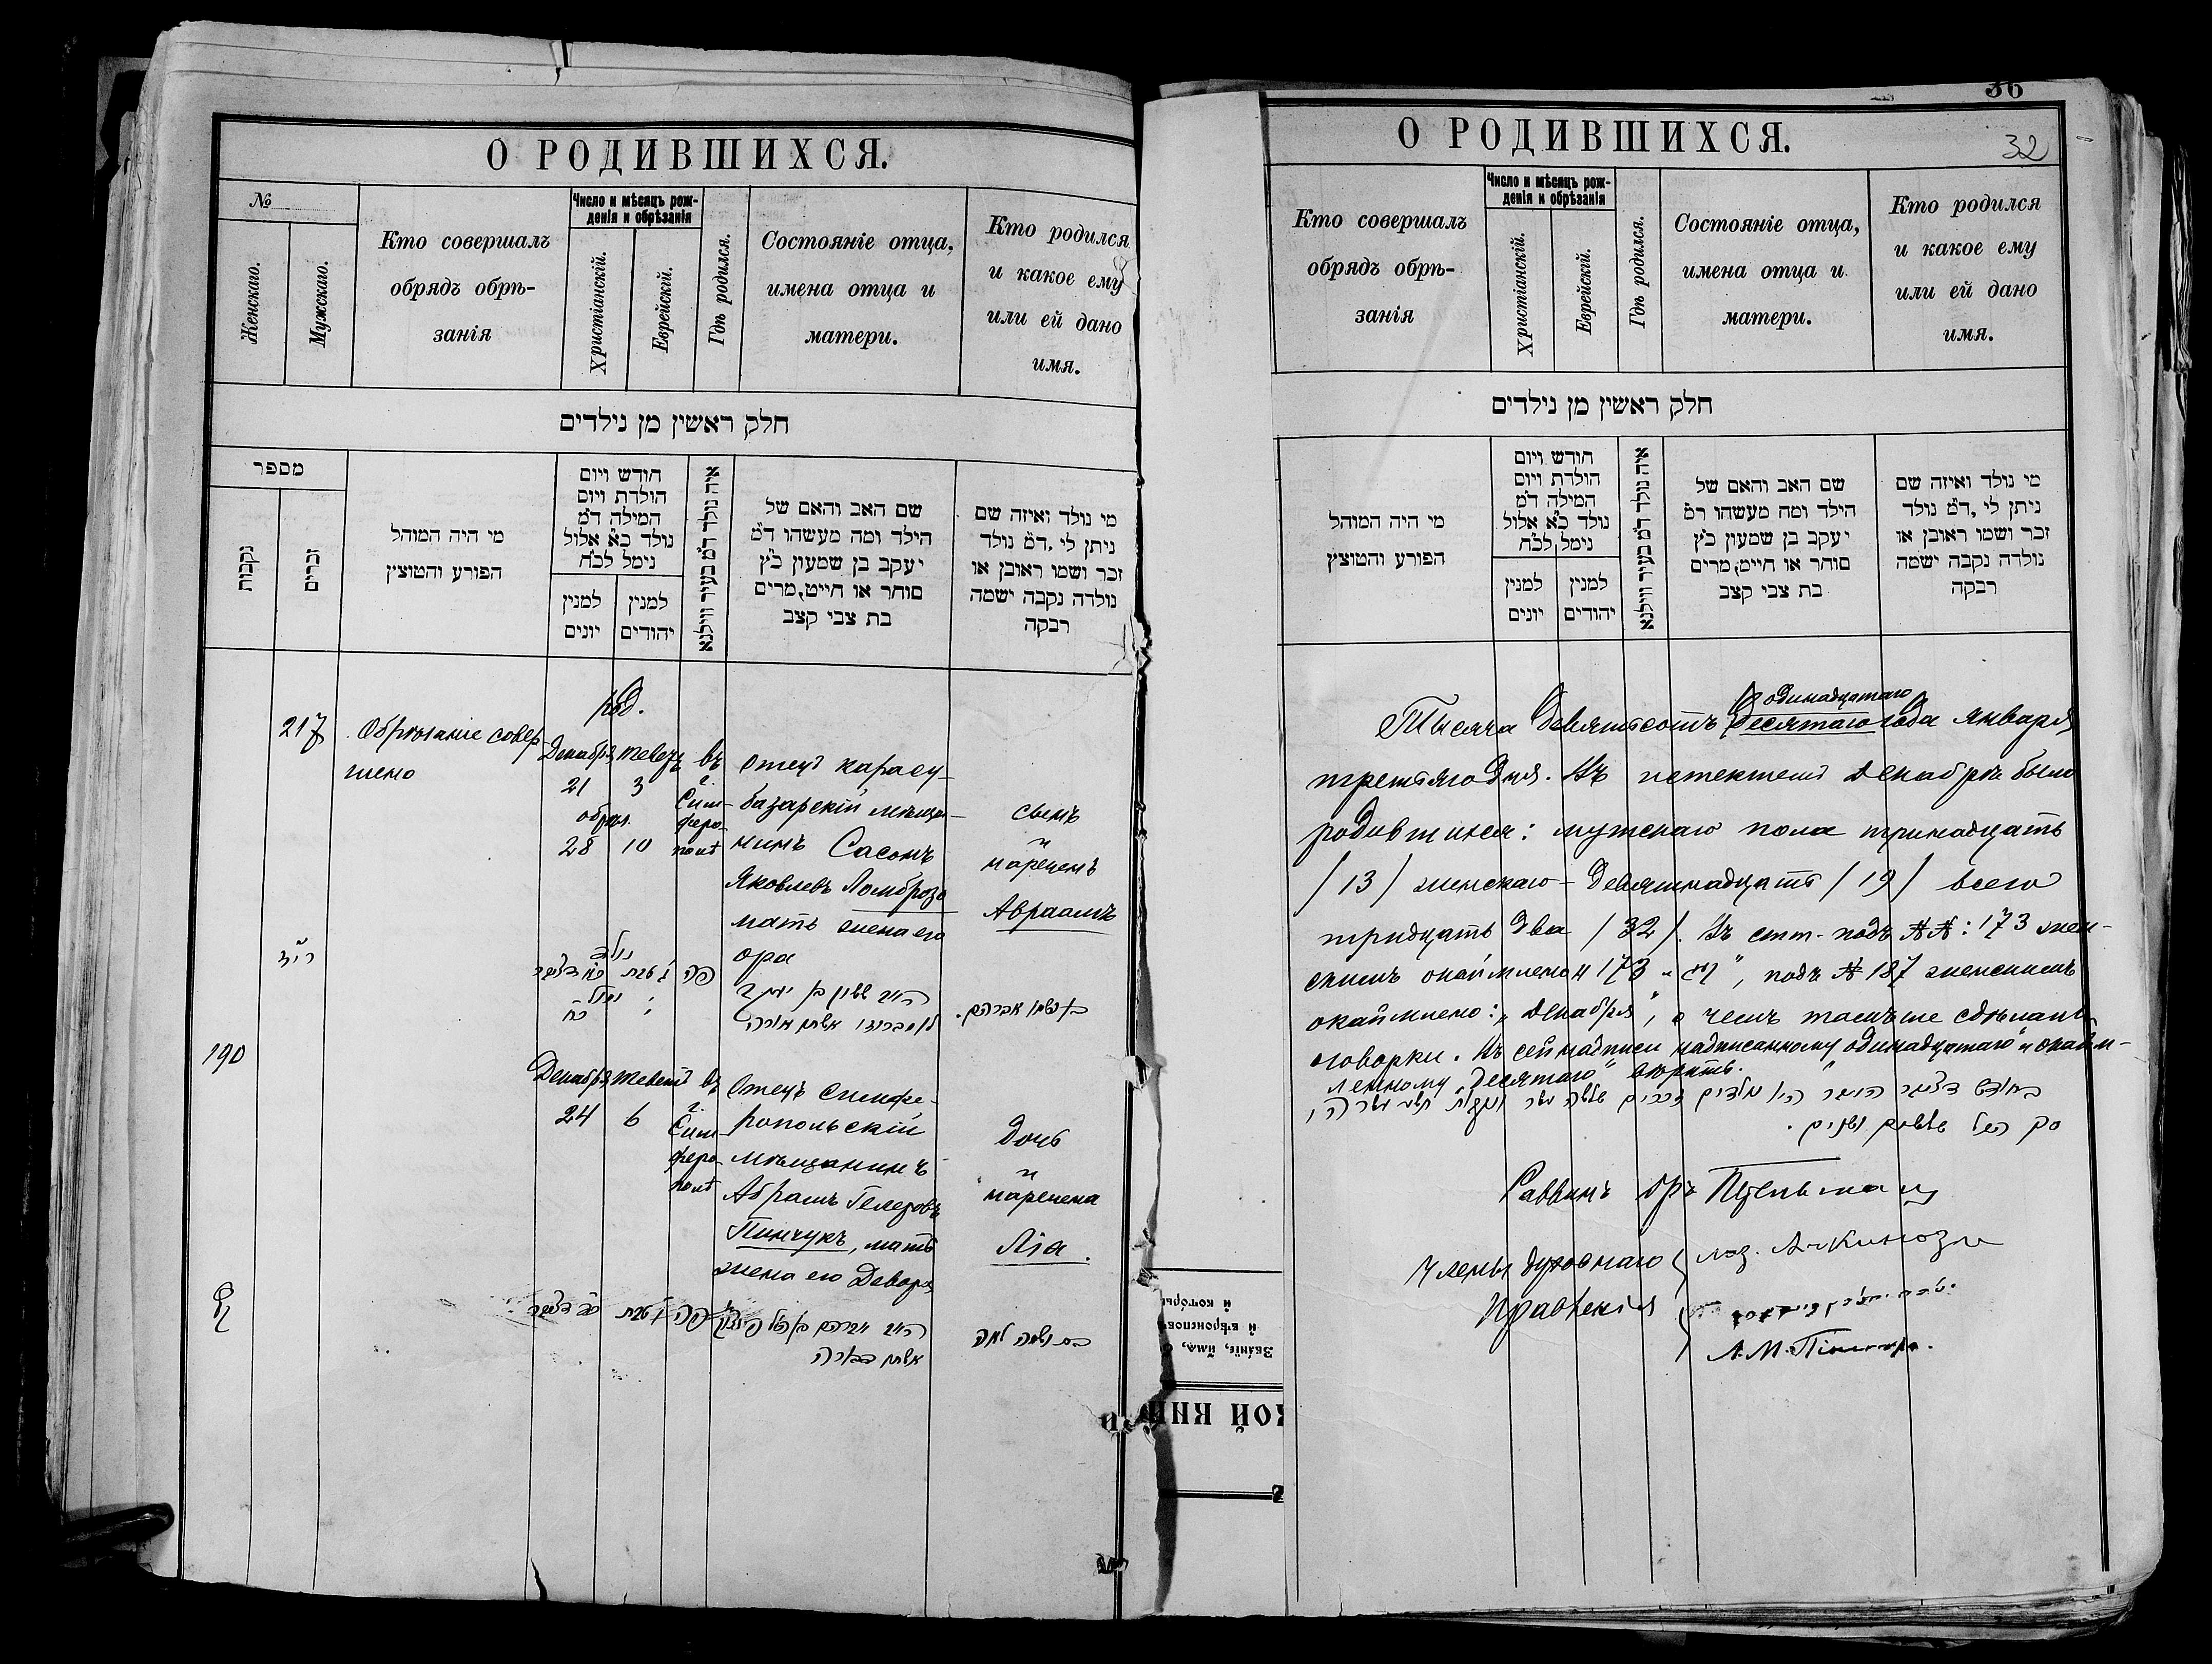 О РОДИВШИХСЯ.
№
Женскаго.
Мужскаго.
Кто совершалъ
обрядъ обрѣ-
занія
Число и мѣсяцъ рож-
денія и обрѣзанія
Христіанскій.
Еврейскій.
Гдѣ родился.
Состояніе отца,
имена отца и
матери.
Кто родился
и какое ему
или ей дано
имя.
חלק ראשון מן נילדים
מספר
נקבות
זכרים
מי היה המוהל
הפורע והטוצץ
חודש ויום
הולדת ויום
המילה דמ
נולד כ״א אלול
נימל לכ״ח
למנין
יונים
למנין
יהודים
איה נולד דמ בעיר ווילנא
שם האב והאם של
הילד ומה מעשהו דמ
יעקב בן שמעון כ״ץ
סוחר או חייט, מרים
בת צבי קצב
מי נולד ואיזה שם
ניתן לי, דמ נולד
זכר ושמו ראובן או
נולדה נקבה ישמה
רבקה
217
Обрѣзаніе совер-
шено
род.
Декабря Тевезъ
21 3
обрѣз.
28 10
въ
г.
Сим-
феро-
полѣ
Отецъ карасу-
базарскій мѣща-
нинъ Сасонъ
Яковлевъ Ломброзо
мать жена его
Ора
сынъ
и
нареченъ
Авраамъ
רי״ז
נולד
פה
190
Декабря Тевета
24 6
въ
г.
Сим-
феро-
полѣ
Отецъ симфе-
ропольскій
мѣщанинъ
Абрамъ Гелеровъ
Пинчукъ, мать
жена его Двора
дочь
и
наречена
Лія.
פה
אשתו דבורה
בת ושמה לאה
и которы
й вѣроиспов
Званіе, имя,
КОЙ КНИ
36
32
О РОДИВШИХСЯ.
Кто совершалъ
обрядъ обрѣ-
занія
Число и мѣсяцъ рож-
денія и обрѣзанія
Христіанскій.
Еврейскій.
Гдѣ родился.
Состояніе отца,
имена отца и
матери.
Кто родился
и какое ему
или ей дано
имя.
חלק ראשון מן נילדים
מי היה המוהל
הפורע והטוצץ
חודש ויום
הולדת ויום
המילה דמ
נולד כ״א אלול
נימל לכ״ח
למנין
יונים
למנין
יהודים
איה נולד דמ בעיר ווילנא
שם האב והאם של
הילד ומה מעשהו דמ
יעקב בן שמעון כ״ץ
סוחר או חייט, מרים
בת צבי קצב
מי נולד ואיזה שם
ניתן לי, דמ נולד
זכר ושמו ראובן או
נולדה נקבה ישמה
רבקה
одинадцатаго
Тысяча девятьсотъ десятаго года января
третьяго дня. Въ истекшемъ Декабрѣ было
родившихся: мужскаго пола тринадцать
/13/ женскаго - девятнадцать /19/ всего
тридцать два /32/. Въ стт. подъ №№: 173 жен-
скимъ окаймлено „173 , подъ № 187 женскимъ
окаймлено: „Декабря", о чемъ тамъ же сдѣланы
оговорки. Въ сей надписи надписанному „одинадцатаго" и окайм-
ленному „десятаго" вѣрить.
סך הכל שלשים ושנים.
Раввинъ
Члены духовнаго
Правленія